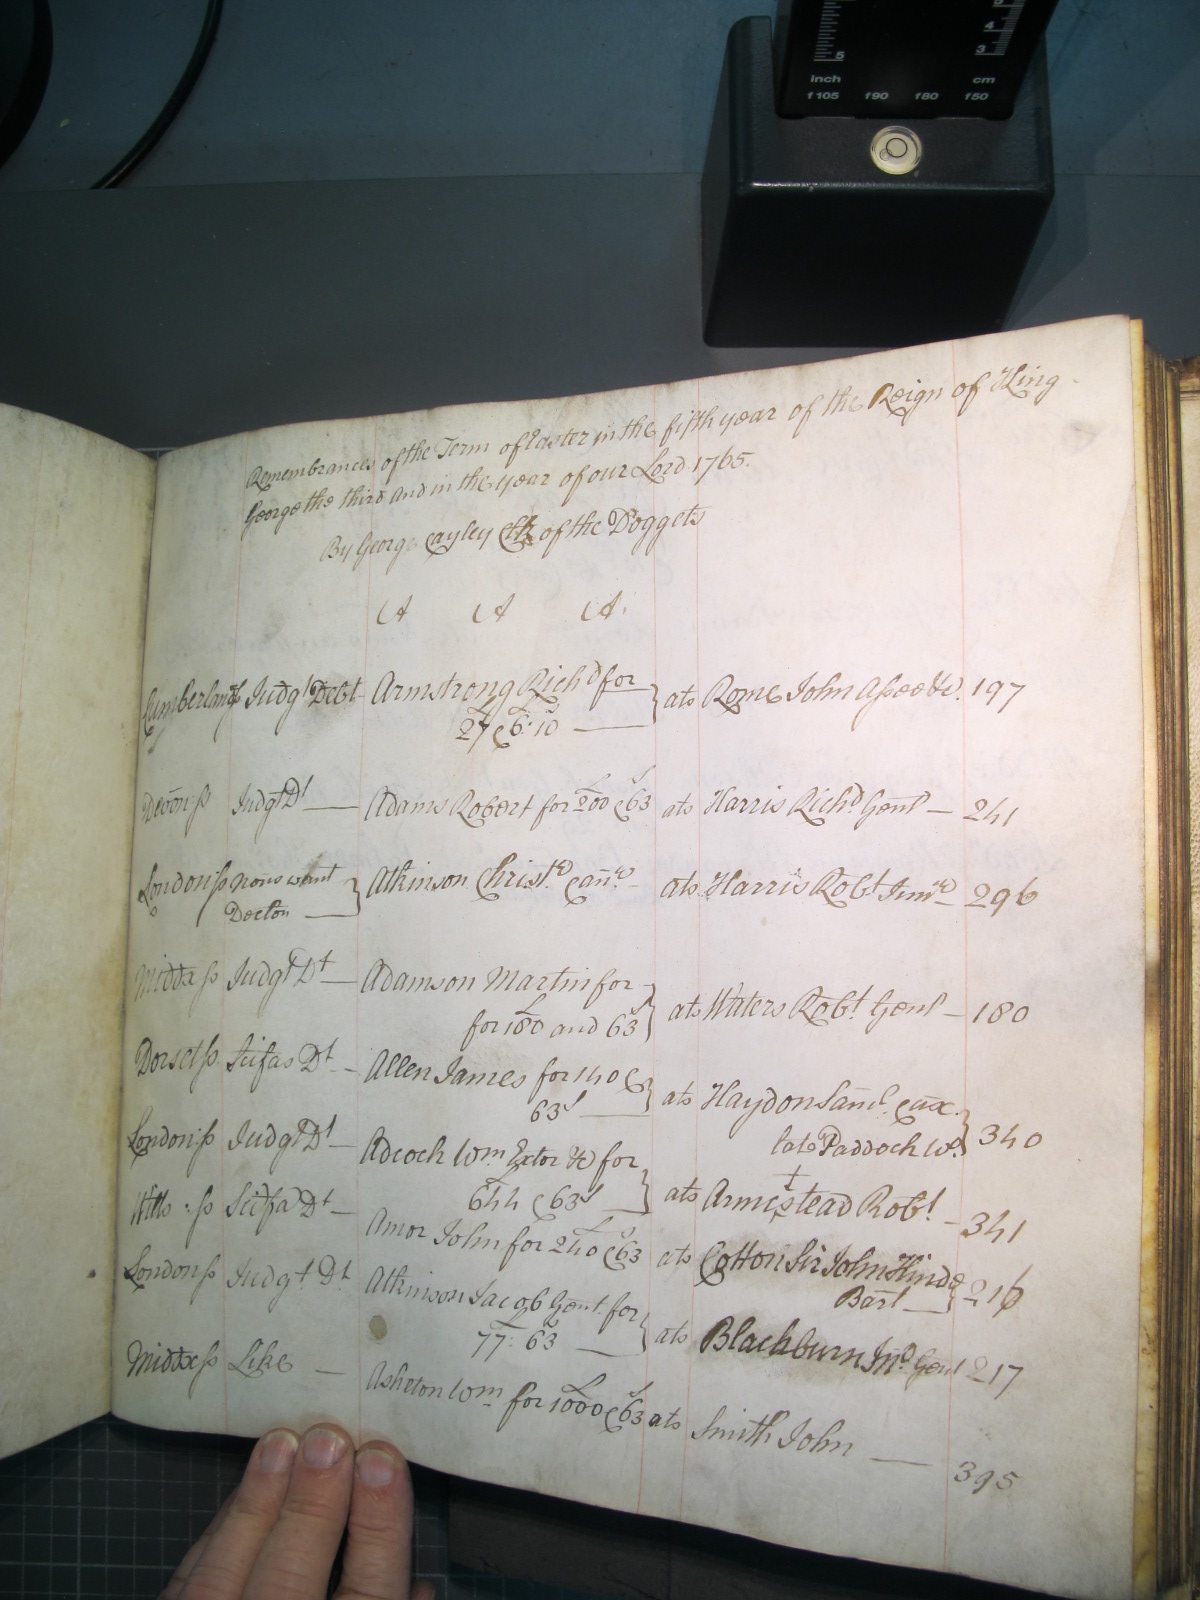 5 4 3
inch cm
f105 f90 f80 f50
Remembrances of the Term of Easter in the fifth year of the Reign of King
George the third and in the year of our Lord 1765.
By George Cayley Clk of the Doggets
A A A.
Cumberland ss Judgt Debt Armstrong Richd for } ats Rome John Assee &c. 197
27 & 6:10
Devon ss Judgt Dt — Adams Robert for 200 & 63s ats Harris Richd. Gent — 241
London ss nons want } Atkinson Christr. ats Harris Robt Junr — 296
Decton
Middx ss Judgt Dt — Adamson Martin for } ats Waters Robt. Gent — 180
for 180 and 63s
Dorset ss. Scifas Dt. — Allen James for 140 & } ats Haydon Saml. & ux. } 340
63s late Paddock Wo.
London ss Judgt Dt — Adcock Wm Extor &c for } ats Armistead Robt. — 341
644 & 63s
Wilts ss Scifa Dt — Amor John for 240 & 63s ats Cotton Sir John Hinde } 216
Bart
London ss Judgt Dt Atkinson Jacob Gent. for } ats Blackburn Jno. Gent 217
77: 63
Middx ss Like — Asheton Wm for 1000 & 63s ats Smith John — 395